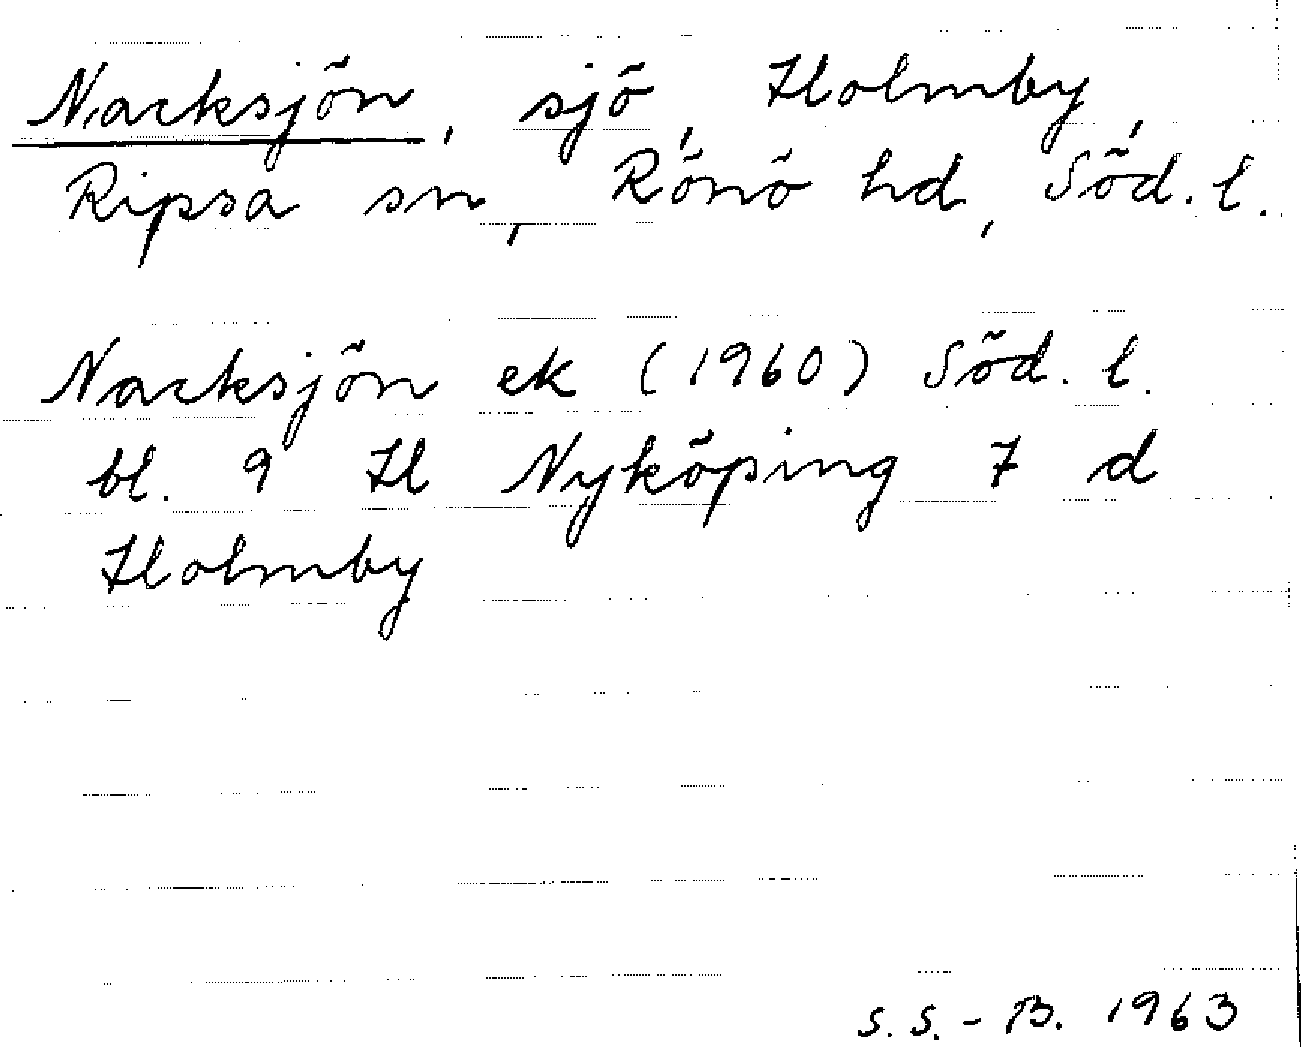 Nacksjön, sjö, Holmby,
Ripsa sn, Rönö hd, Söd. l.
Nacksjön ek (1960) Söd. l.
bl. 9 H Nyköping 7 d
Holmby
S. S. - B. 1963